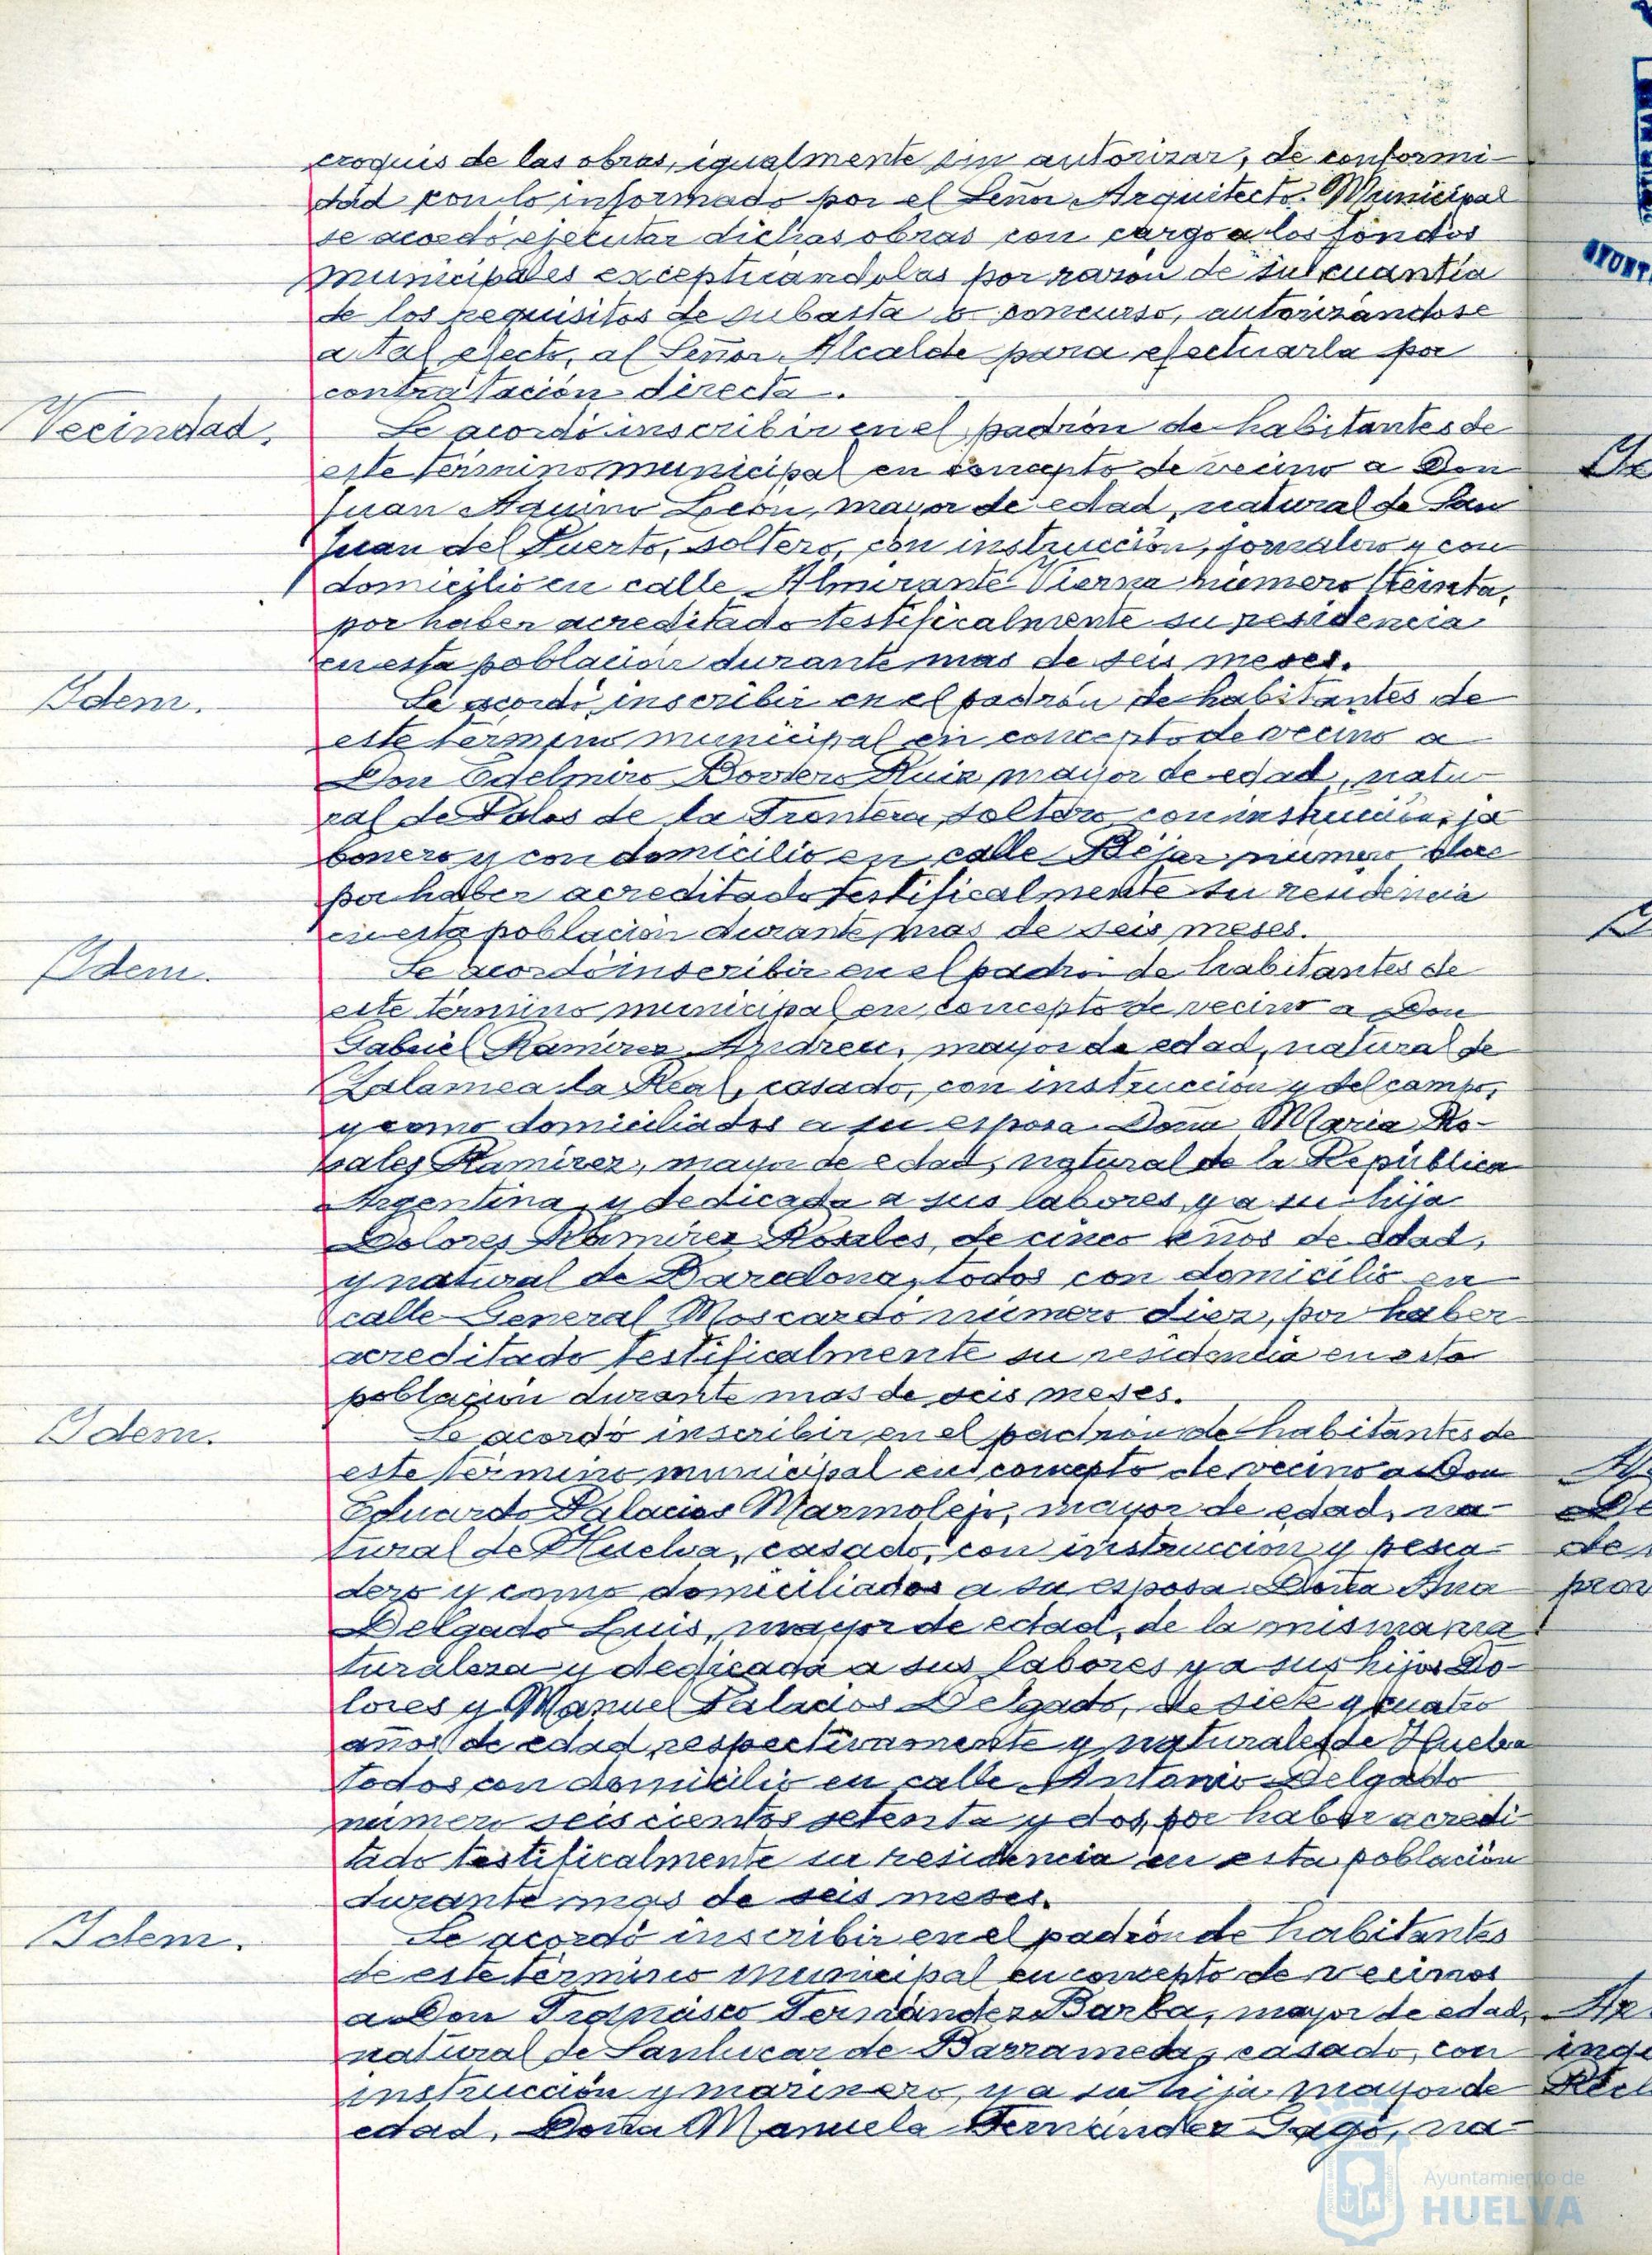 croquis de las obras, igualmente sin autorizar, de conformi-
dad con lo informado por el Señor Arquitecto Municipal
se acordó ejecutar dichas obras con cargo a los fondos
municipales exceptuándolas por razón de su cuantía
de los requisitos de subasta o concurso, autorizándose
a tal efecto, al Señor Alcalde para efectuarla por
contratación directa.
Vecindad.
Se acordó inscribir en el padrón de habitantes de
este término municipal en concepto de vecino a Don
Juan Aquino León, mayor de edad, natural de San
Juan del Puerto, soltero, con instrucción, jornalero y con
domicilio en calle Almirante Vierna número treinta,
por haber acreditado testificalmente su residencia
en esta población durante mas de seis meses.
Idem.
Se acordó inscribir en el padrón de habitantes de
este término municipal en concepto de vecino a
Don Edelmiro Ruiz mayor de edad, natu-
ral de Palos de la Frontera, soltero con instrucción, ja
bonero y con domicilio en calle Béjar número doce
por haber acreditado testificalmente su residencia
en esta población durante mas de seis meses.
Idem.
Se acordó inscribir en el padrón de habitantes de
este término municipal en concepto de vecino a Don
Gabriel Ramírez Andreu, mayor de edad, natural de
Zalamea la Real, casado, con instrucción y del campo,
y como domiciliados a su esposa Doña Maria Ro-
sales Ramírez, mayor de edad, natural de la República
Argentina, y dedicada a sus labores, y a su hija
Dolores Ramírez Rosales, de cinco años de edad,
y natural de Barcelona, todos con domicilio en
calle General Moscardó número diez, por haber
acreditado testificalmente su residencia en esta
población durante mas de seis meses.
Idem.
Se acordó inscribir en el padrón de habitantes de
este término municipal en concepto de vecino a Don
Eduardo Palacios Marmolejo, mayor de edad, na-
tural de Huelva, casado, con instrucción y pesca-
dero y como domiciliados a su esposa Doña Ana
Delgado Luis, mayor de edad, de la misma na
turaleza y dedicada a sus labores y a sus hijos Do-
lores y Manuel Palacios Delgado, de siete y cuatro
años de edad respectivamente y naturales de Huelva
todos con domicilio en calle Antonio Delgado
número seiscientos setenta y dos, por haber acredi-
tado testificalmente su residencia en esta población
durante mas de seis meses.
Idem.
Se acordó inscribir en el padrón de habitantes
de este término municipal en concepto de vecinos
a Don Francisco Fernández Barba, mayor de edad,
natural de Sanlucar de Barrameda, casado, con
instrucción y marinero, y a su hija mayor de
edad, Doña Manuela Fernández Gago, na-
Ayuntamiento de
HUELVA